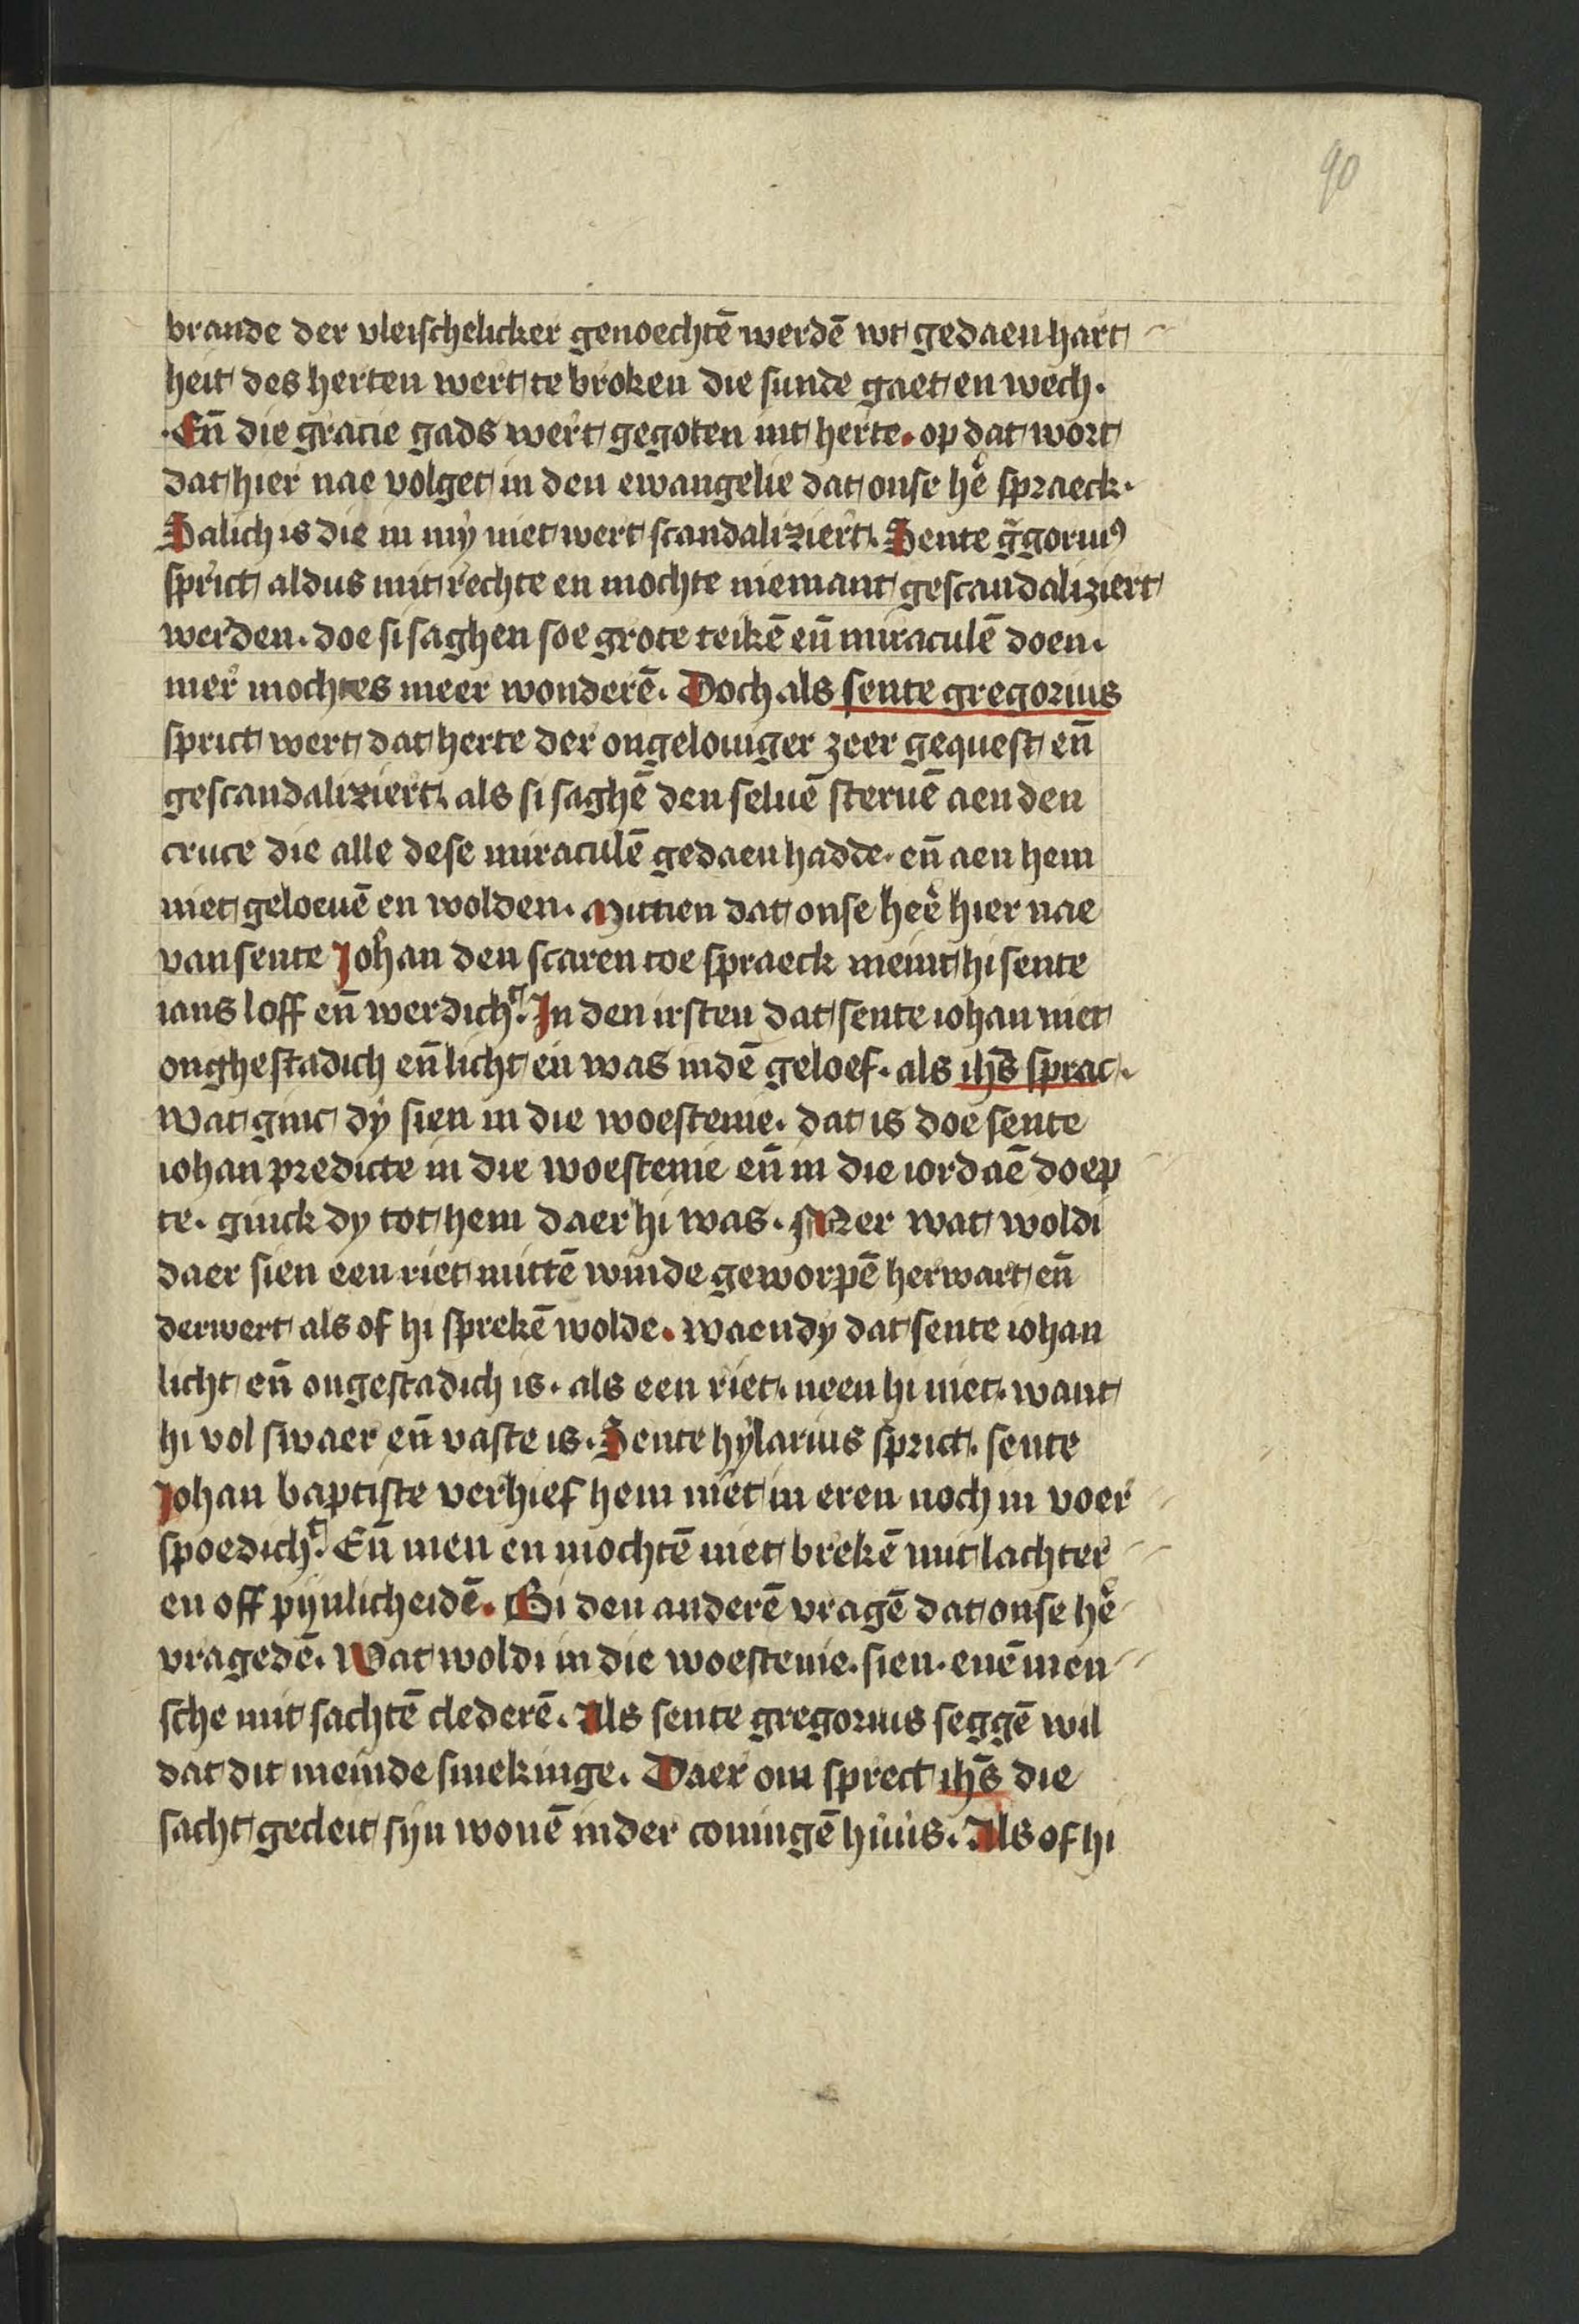 90
brande der vleischelicker genoechtē werdē wt gedaen hart
heit des herten wert te broken die sunde gaet en wech.
Eñ die gracie gads wert gegoten int herte. op dat wort
dat hier nae volget in den ewangelie dat onse hē spraeck.
Salich is die in mÿ niet wert scandaliziert. Sente g̃goriꝰ
sprict aldus mit rechte en mochte niemant gescandaliziert
werden. doe si saghen soe grote teikē eñ miraculē doen.
mer mochtes meer wonderē. Doch als sente gregorius
sprict wert dat herte der ongelouiger zeer gequest eñ
gescandaliziert. als si saghē den seluē steruē aen den
cruce die alle dese miraculē gedaen hadde. eñ aen hem
niet geloeuē en wolden. Mittien dat onse heē hier nae
van sente Johan den scaren toe spraeck meint hi sente
ians loff eñ werdichᵗ. In den irsten dat sente iohan niet
onghestadich eñ licht en was indē geloef. als ihs̄ sprac.
Wat ginc dÿ sien in die woestenie. dat is doe sente
iohan predicte in die woestenie eñ in die iordaē doep
te. ginck dy tot hem daer hi was. Mer wat woldi
daer sien een riet mittē winde geworpē herwart eñ
derwert als of hi sprekē wolde. waendy dat sente iohan
licht eñ ongestadich is. als een riet. neen hi niet. want
hi vol swaer eñ vaste is. Sente hÿlarius sprict. sente
Johan baptiste verhief hem niet in eren noch in voer
spoedichᵗ. Eñ men en mochtē niet brekē mit lachter
en off pijnlicheidē. Bi den anderē vragē dat onse hē
vragedē. Wat woldi in die woestenie. sien. enē men
sche mit sachtē clederē. Als sente gregorius seggē wil
dat dit meinde smekinge. Daer om sprect ihs̄ die
sacht gecleit sijn wonē inder coningē huus. Als of hi